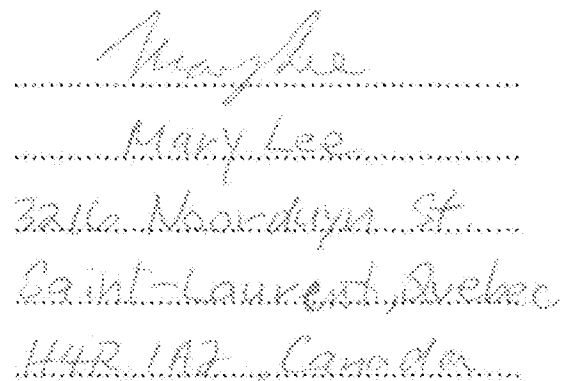 Mary Lee
Mary Lee
3216 Noorduyn St.
Saint-Laurent, Quebec
H4R 1A2 Canada